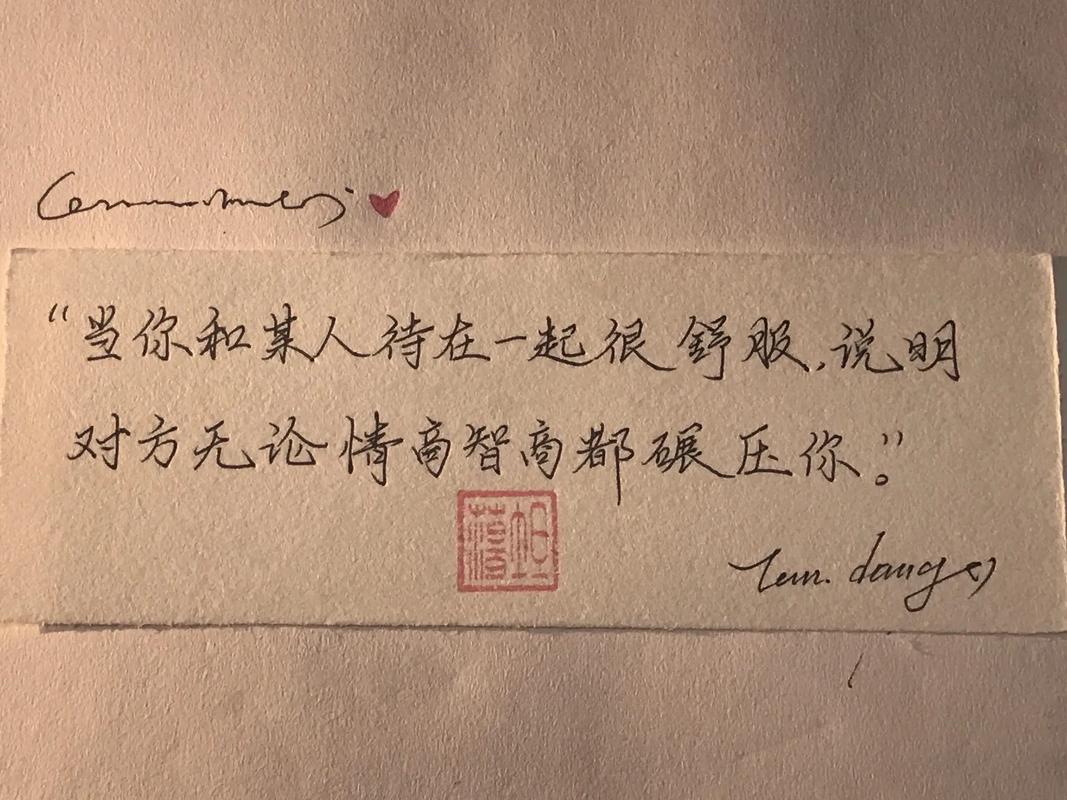 “当你和某人待在一起很舒服,说明
对方无论情商智商都碾压你。”